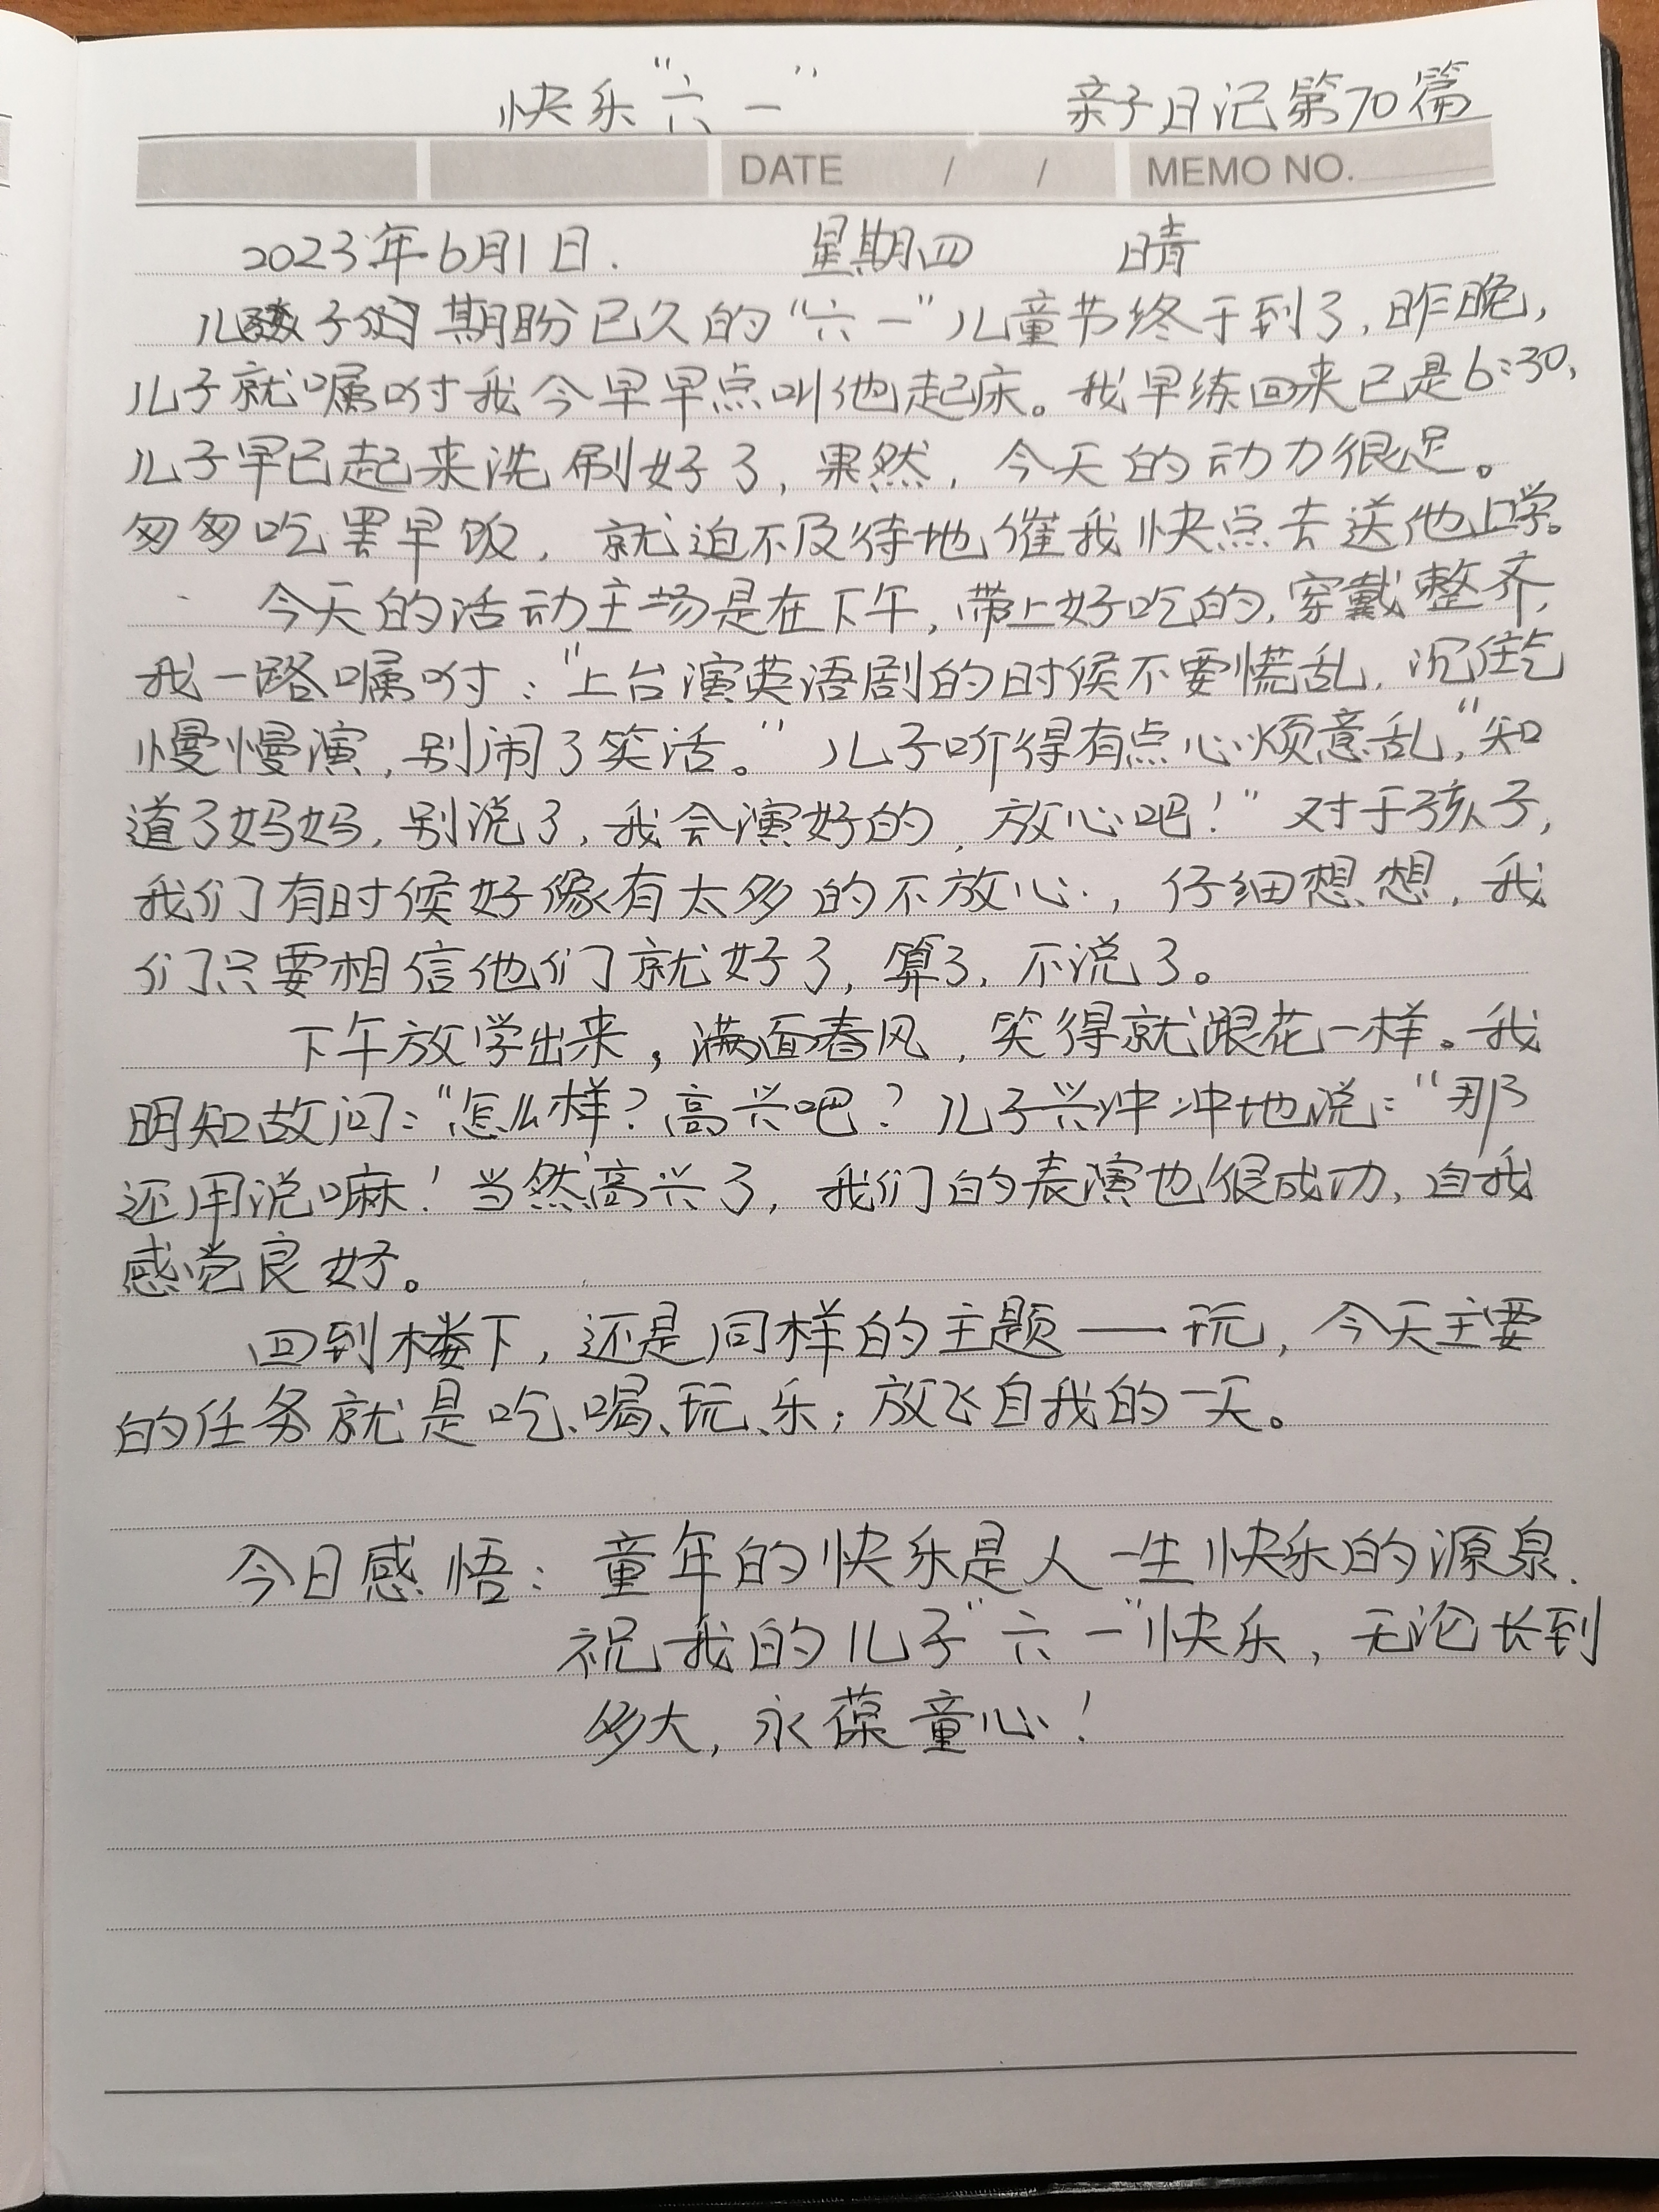 快乐“六一”　亲子日记第70篇
DATE / / MEMO NO.
2023年6月1日.　星期四　晴
儿子期盼已久的“六一”儿童节终于到了，昨晚，
儿子就嘱咐我今早早点叫他起床。我早练回来已是6:30，
儿子早已起来洗刷好了，果然，今天的动力很足。
匆匆吃罢早饭，就迫不及待地催我快点去送他上学。
今天的活动主场是在下午，带上好吃的，穿戴整齐，
我一路嘱咐：“上台演英语剧的时候不要慌乱，沉住气
慢慢演，别闹了笑话。”儿子听得有点心烦意乱，“知
道了妈妈，别说了，我会演好的，放心吧！”对于孩子，
我们有时候好像有太多的不放心，仔细想想，我
们只要相信他们就好了，算了，不说了。
下午放学出来，满面春风，笑得就跟花一样。我
明知故问：“怎么样？高兴吧？儿子兴冲冲地说：“那
还用说嘛！当然高兴了，我们的表演也很成功，自我
感觉良好。
回到楼下，还是同样的主题——玩，今天主要
的任务就是吃、喝、玩、乐；放飞自我的一天。
今日感悟：童年的快乐是人一生快乐的源泉.
祝我的儿子“六一”快乐，无论长到
多大，永葆童心！